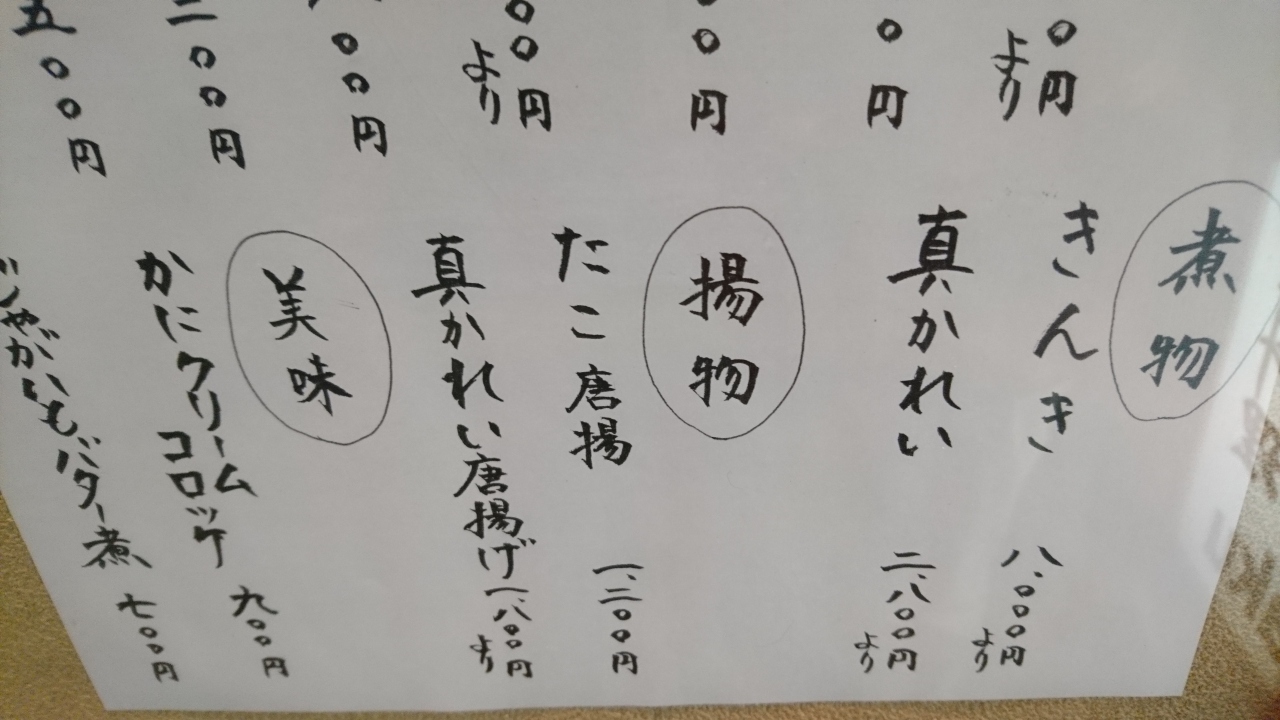 〇円
より
〇円
〇〇円
〇〇円
より
〇〇円
二〇〇円
五〇〇円
煮物
きんき 八、〇〇〇円
より
真かれい 二、八〇〇円
より
揚物
たこ唐揚 一、二〇〇円
真かれい唐揚げ 一、八〇〇円
より
美味
かにクリーム
コロッケ 九〇〇円
じゃがいもバター煮 七〇〇円